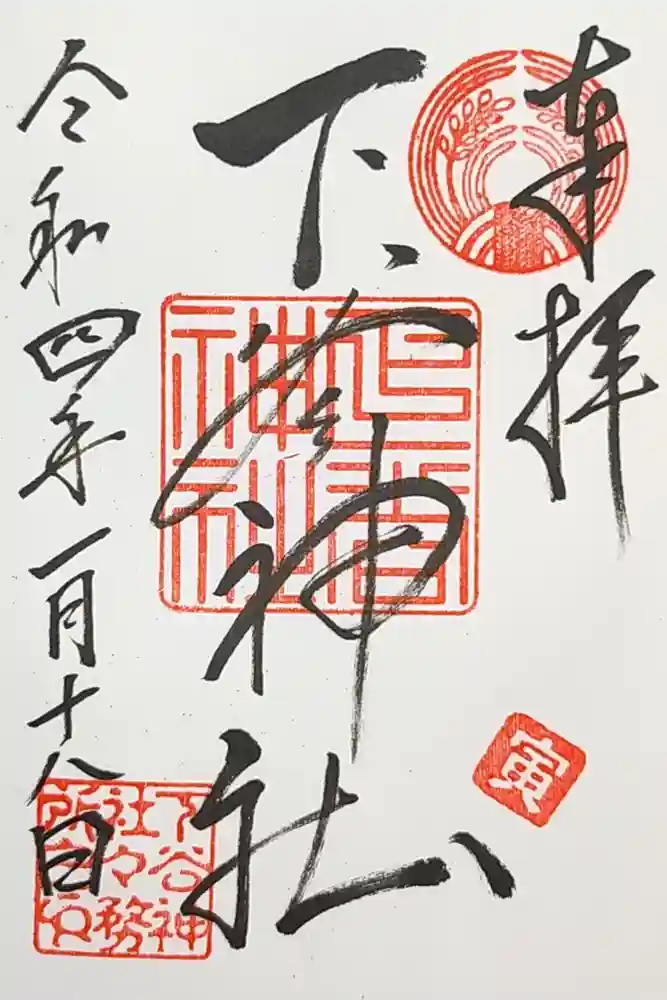 奉拝
下谷神社
令和四年一月十八日
下谷神社
寅
下谷神
社々務
所之印